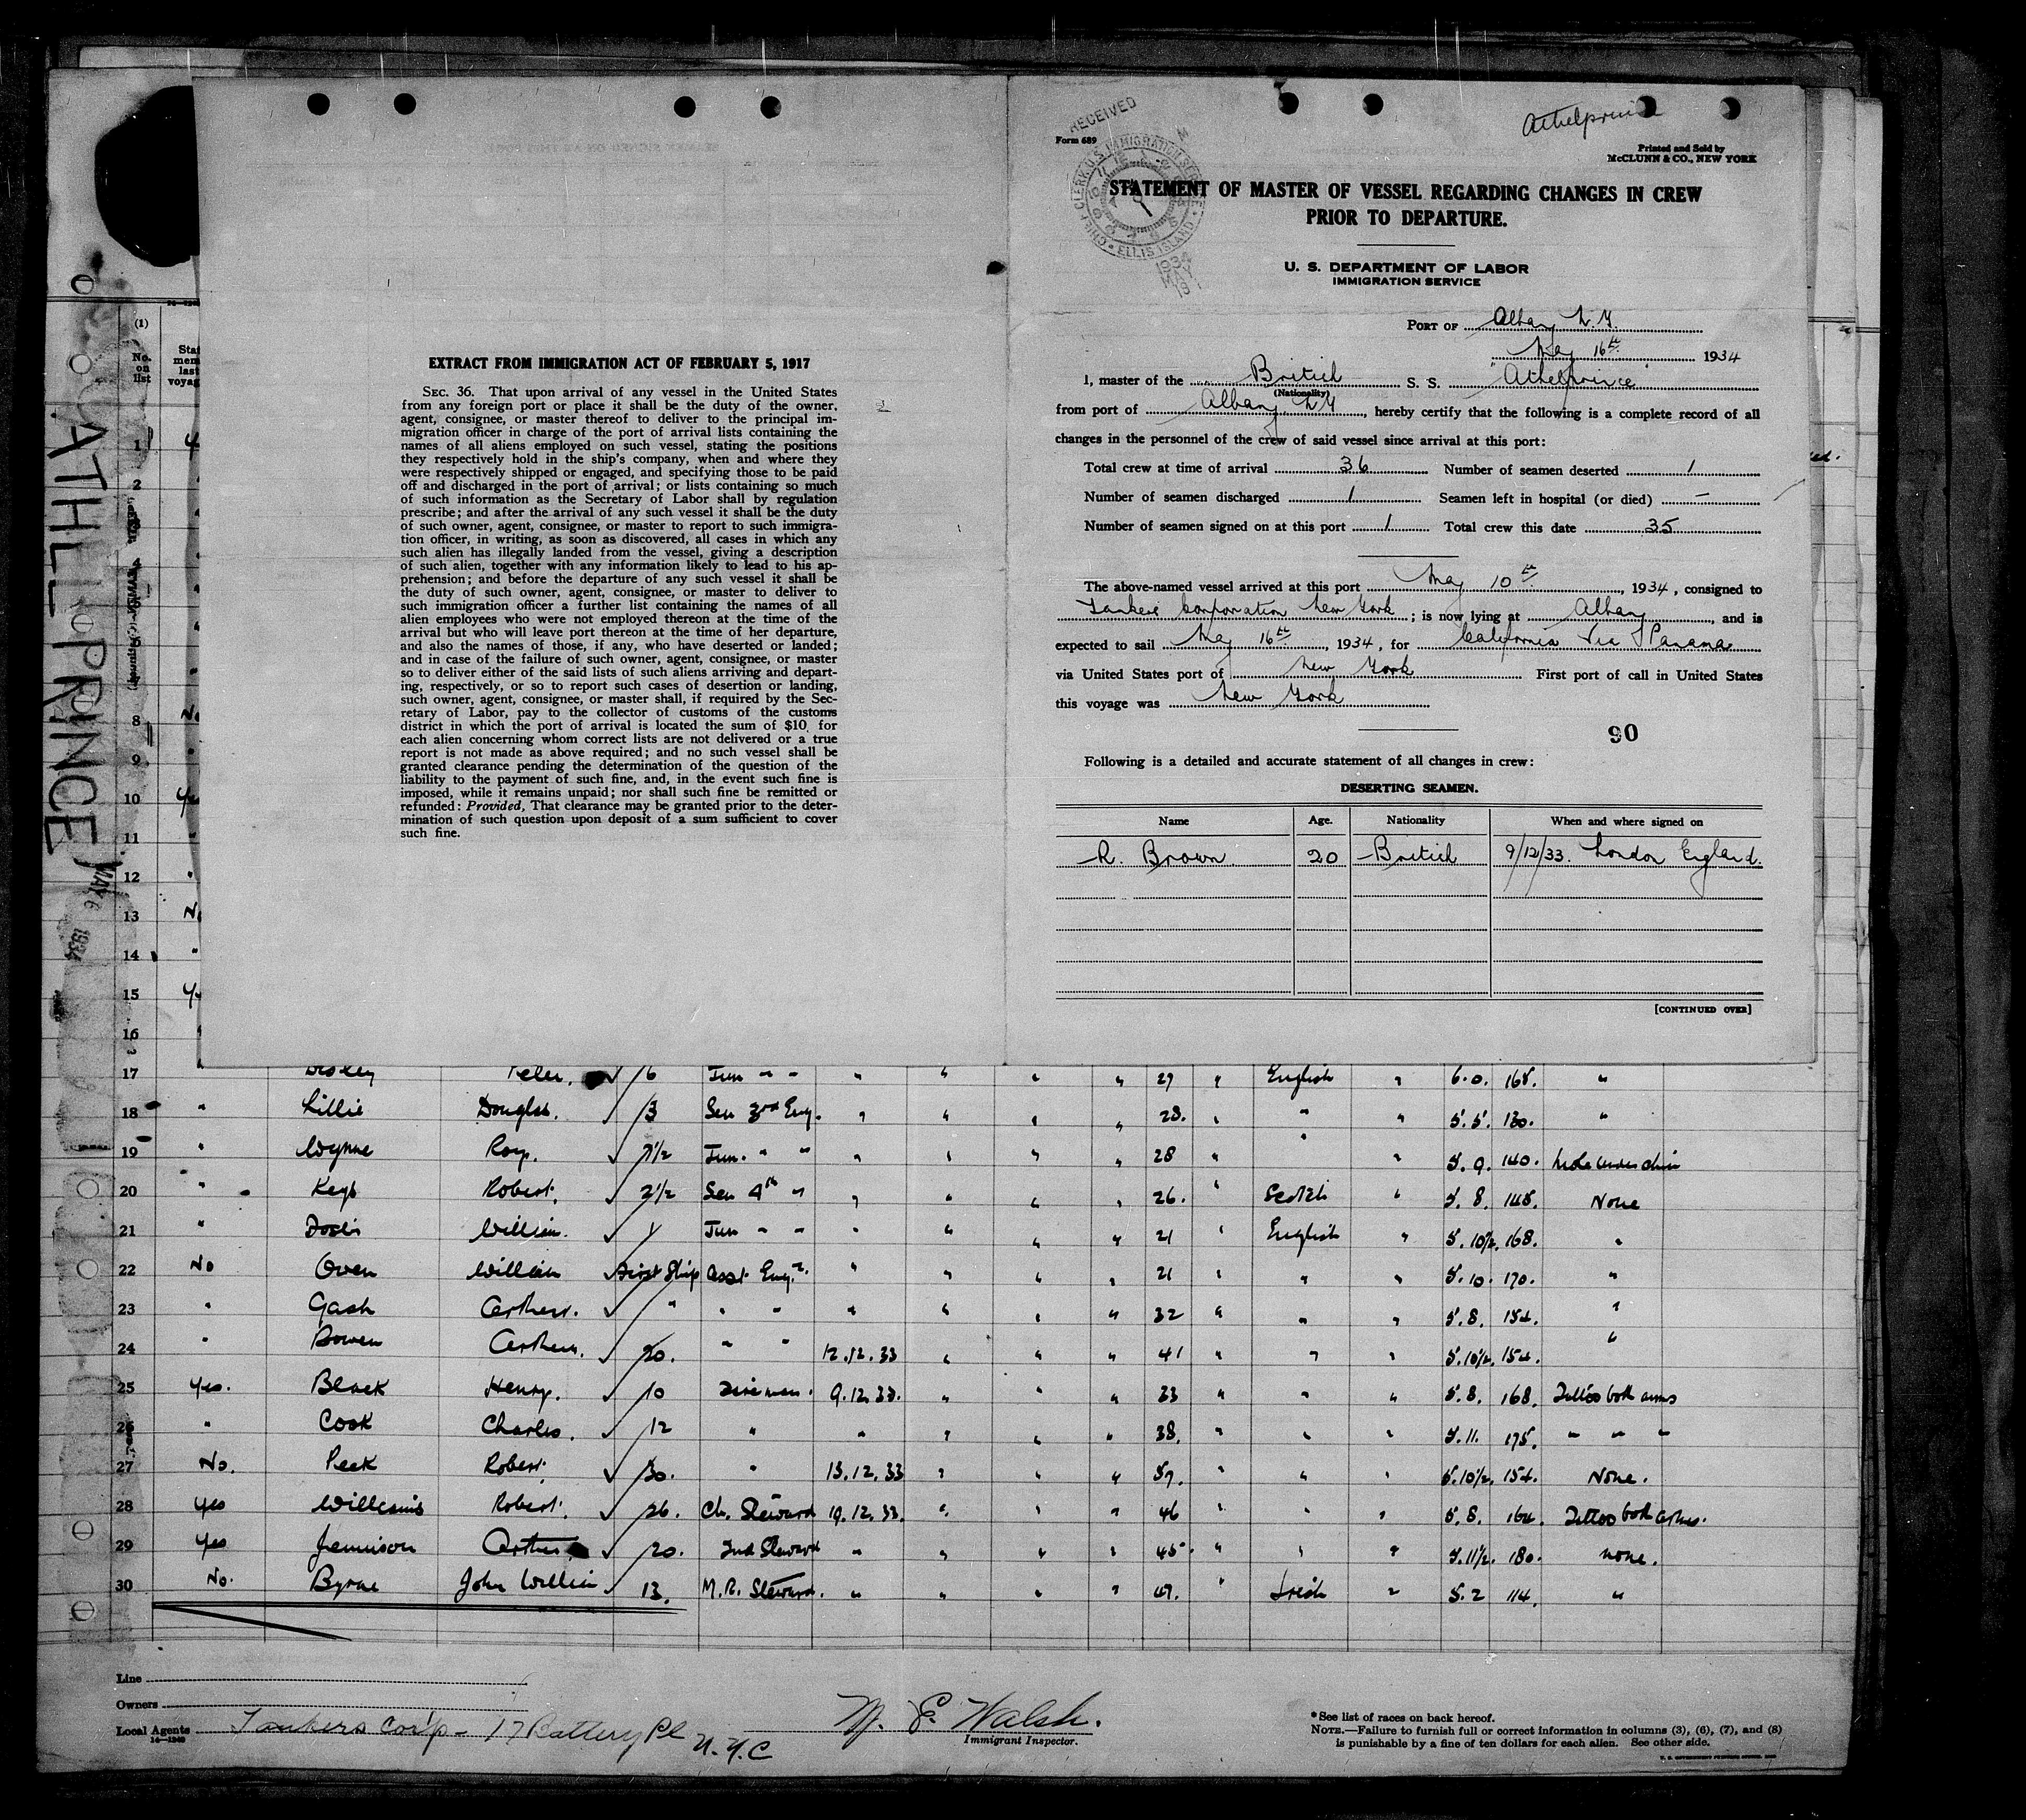 Athelprince
RECEIVED
CHIEF CLERK U.S. IMMIGRATION SERVICE
ELLIS ISLAND
1934
MAY
Form 689
Printed and Sold by
McCLUNN & CO., NEW YORK
STATEMENT OF MASTER OF VESSEL REGARDING CHANGES IN CREW
PRIOR TO DEPARTURE.
U. S. DEPARTMENT OF LABOR
IMMIGRATION SERVICE
PORT OF Albany N.Y.
May 16th 1934
I, master of the British S. S. "Athelprince"
(Nationality)
from port of Albany N.Y., hereby certify that the following is a complete record of all
changes in the personnel of the crew of said vessel since arrival at this port:
Total crew at time of arrival 36 Number of seamen deserted 1
Number of seamen discharged 1 Seamen left in hospital (or died) —
Number of seamen signed on at this port 1 Total crew this date 35
The above-named vessel arrived at this port May 10th, 1934, consigned to
Tankers Corporation New York; is now lying at Albany, and is
expected to sail May 16th, 1934, for California Via Panama
via United States port of New York First port of call in United States
this voyage was New York
90
Following is a detailed and accurate statement of all changes in crew:
DESERTING SEAMEN.
Name Age. Nationality When and where signed on
R. Brown 20 British 9/12/33. London England.
[CONTINUED OVER]
EXTRACT FROM IMMIGRATION ACT OF FEBRUARY 5, 1917
SEC. 36. That upon arrival of any vessel in the United States
from any foreign port or place it shall be the duty of the owner,
agent, consignee, or master thereof to deliver to the principal im-
migration officer in charge of the port of arrival lists containing the
names of all aliens employed on such vessel, stating the positions
they respectively hold in the ship's company, when and where they
were respectively shipped or engaged, and specifying those to be paid
off and discharged in the port of arrival; or lists containing so much
of such information as the Secretary of Labor shall by regulation
prescribe; and after the arrival of any such vessel it shall be the duty
of such owner, agent, consignee, or master to report to such immigra-
tion officer, in writing, as soon as discovered, all cases in which any
such alien has illegally landed from the vessel, giving a description
of such alien, together with any information likely to lead to his ap-
prehension; and before the departure of any such vessel it shall be
the duty of such owner, agent, consignee, or master to deliver to
such immigration officer a further list containing the names of all
alien employees who were not employed thereon at the time of the
arrival but who will leave port thereon at the time of her departure,
and also the names of those, if any, who have deserted or landed;
and in case of the failure of such owner, agent, consignee, or master
so to deliver either of the said lists of such aliens arriving and depart-
ing, respectively, or so to report such cases of desertion or landing,
such owner, agent, consignee, or master shall, if required by the Sec-
retary of Labor, pay to the collector of customs of the customs
district in which the port of arrival is located the sum of $10 for
each alien concerning whom correct lists are not delivered or a true
report is not made as above required; and no such vessel shall be
granted clearance pending the determination of the question of the
liability to the payment of such fine, and, in the event such fine is
imposed, while it remains unpaid; nor shall such fine be remitted or
refunded: Provided, That clearance may be granted prior to the deter-
mination of such question upon deposit of a sum sufficient to cover
such fine.
ATHELPRINCE
MAY 6 1934
(1)
No.
on
list
1
2
8
9
10
11
12
13
14
15
16
17 " Peter. 6 Jun " " " " " " 27 " English " 6.0. 168. "
18 " Lillie Douglas. 13 Sen 3rd Eng. " " " " 28. " " " 5.5. 130. "
19 " Wynne Roy. 7½ Jun. " " " " " " 28 " " 5.9. 140. Mole under chin
20 " Keys Robert. 2½ Sen 4th " " " " " 26. " Scotch " 5.8. 148. None
21 " William. 1 Jun " " " " " " 21 English " 5.10½. 168. "
22 No Owen William First Ship Asst Engr. " " " " 21 " " " 5.10. 170. "
23 " Gash Arthur. " " " " " " " 32 " " " 5.8. 154. "
24 " Bowen Arthur. 20. " " 12.12.33 " " " 41 " " " 5.10½. 154. "
25 Yes. Black Henry. 10 Fireman. 9.12.33. " " " 33 " " " 5.8. 168. Tattoo both arms
26 " Cook Charles. 12 " " " " " 38. " " " 5.11. 175. " " "
27 No. Peek Robert. 30. " 13.12.33 " " " 59. " " " 5.10½. 154. None.
28 Yes Williams Robert. 26. Ch. Steward 19.12.33. " " " 46 " " 5.8. 164. Tattoo both arms.
29 Yes Jennison Arthur. 20. 2nd Steward " " " " 45. " " " 5.11½. 180. none.
30 No. Byrne John William 13. M.R. Steward. " " " " 49. " Irish " 5.2 114. "
Line
Owners
Local Agents Tankers Corp - 17 Battery Pl N.Y.C
14—1240
M. E. Walsh.
Immigrant Inspector.
*See list of races on back hereof.
NOTE.—Failure to furnish full or correct information in columns (3), (6), (7), and (8)
is punishable by a fine of ten dollars for each alien. See other side.